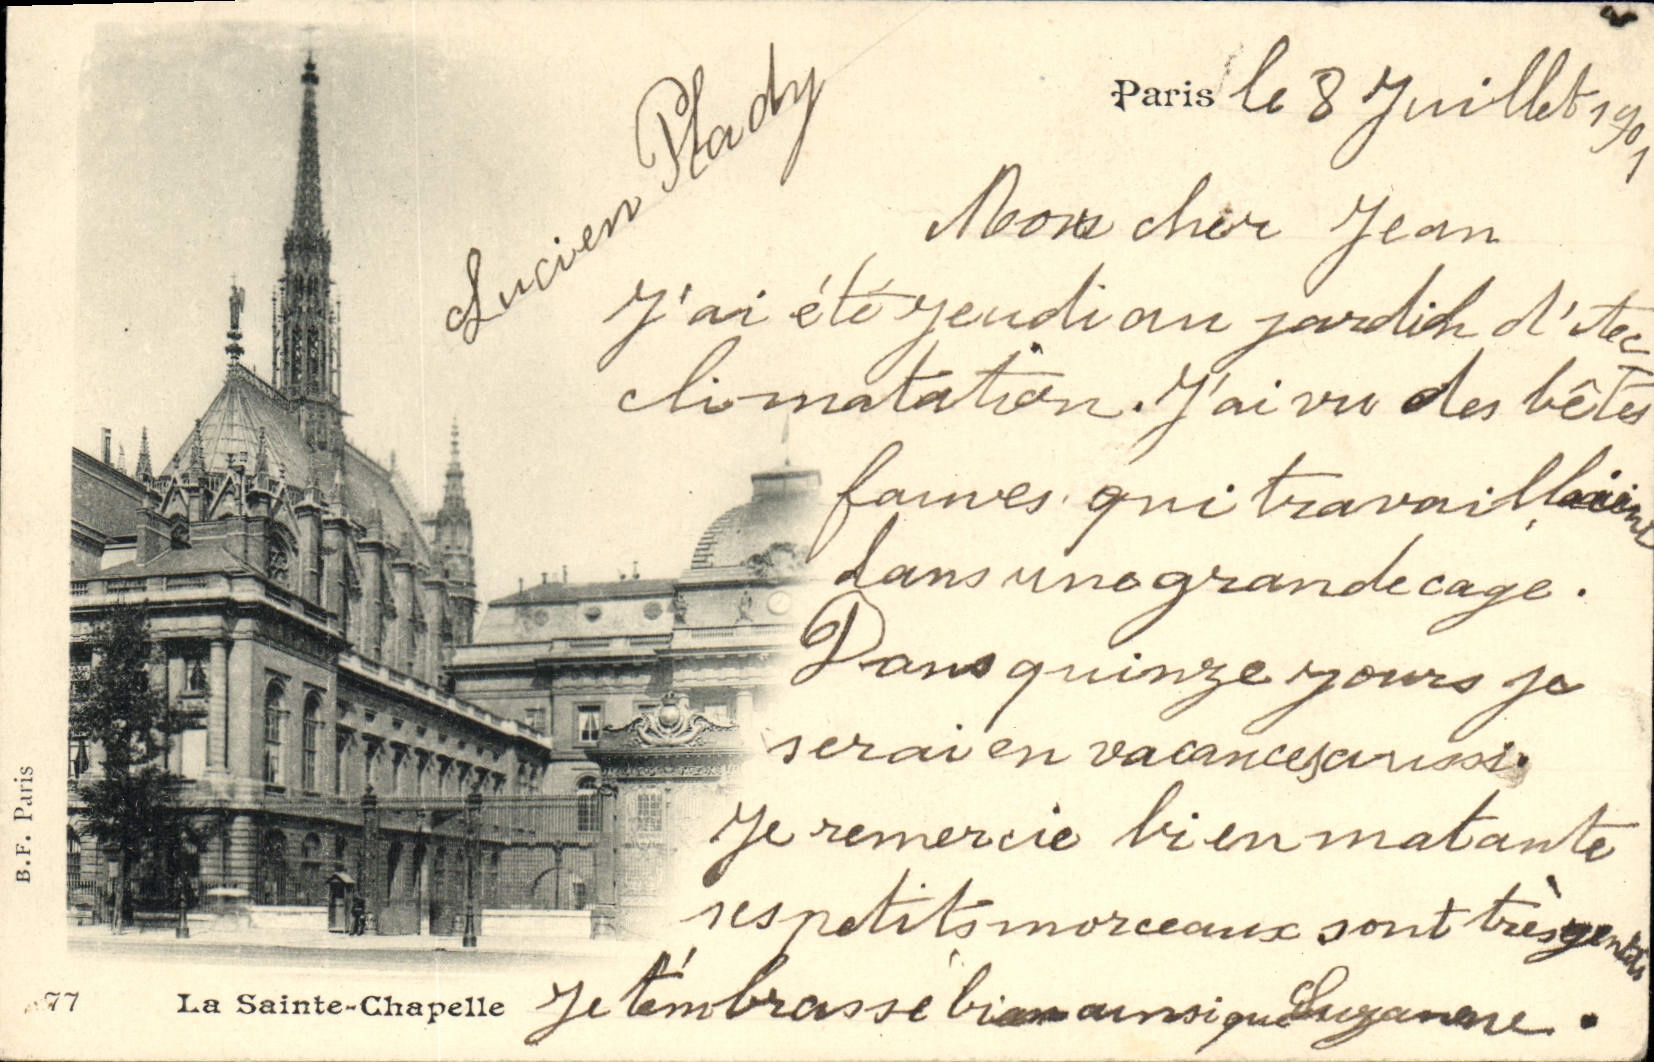 Paris le 8 Juillet 1901
Lucien Plady
Mon cher Jean
J'ai été jeudi au jardin d'Ac
climatation. J'ai vu des bêtes
fauves qui travaillaient
dans une grande cage.
Dans quinze jours je
serai en vacances aussi.
Je remercie bien ma tante
ses petits morceaux sont très gentils
Je t'embrasse bien ainsi que Suzanne.
77 La Sainte-Chapelle
B.F. Paris